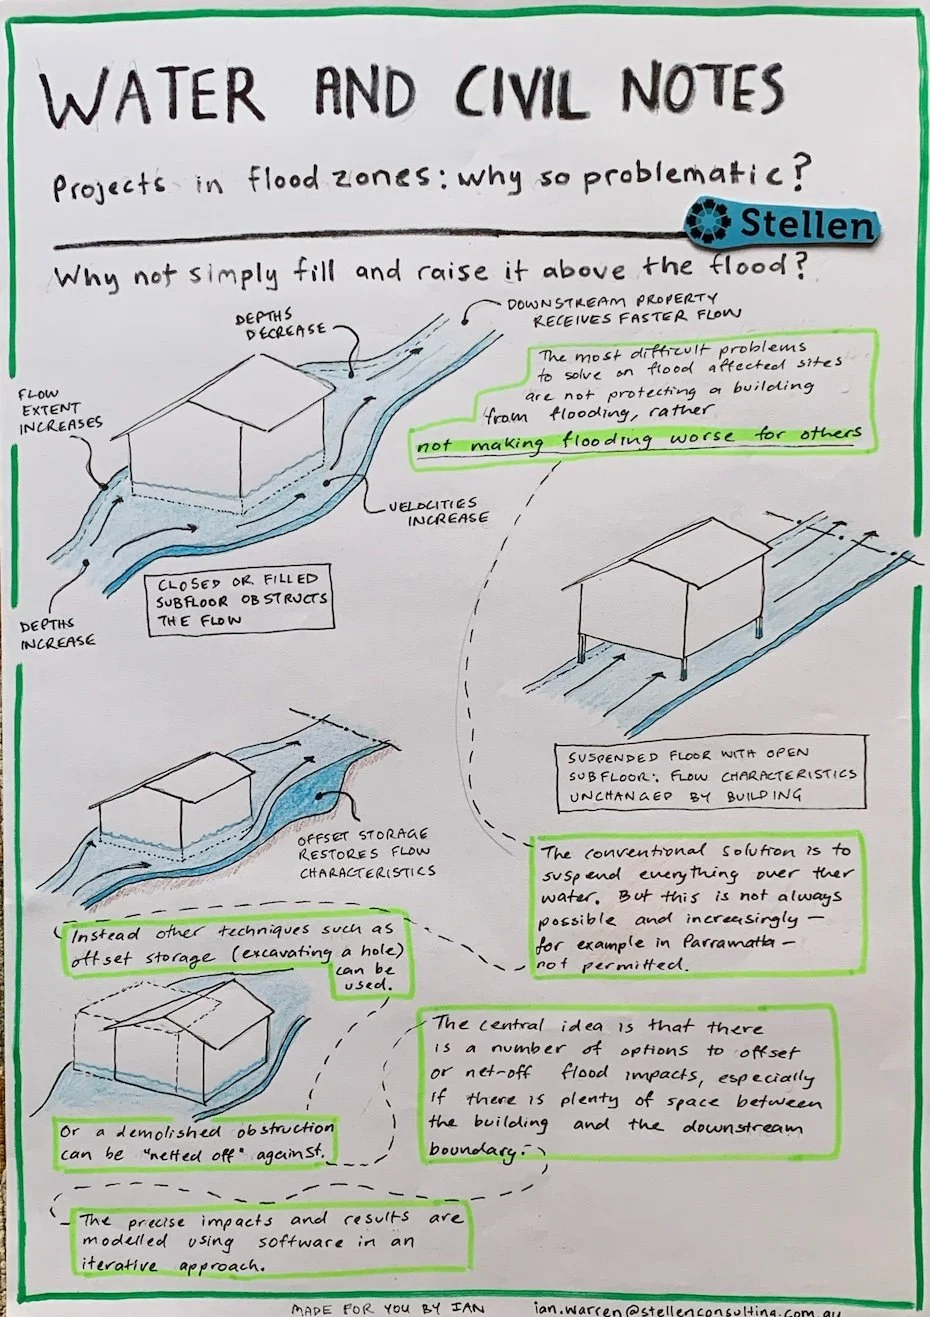 WATER AND CIVIL NOTES
Projects in flood zones: why so problematic?
Stellen
Why not simply fill and raise it above the flood?
DEPTHS
DECREASE
DOWNSTREAM PROPERTY
RECEIVES FASTER FLOW
FLOW
EXTENT
INCREASES
The most difficult problems
to solve on flood affected sites
are not protecting a building
from flooding, rather
not making flooding worse for others
VELOCITIES
INCREASE
CLOSED OR FILLED
SUBFLOOR OBSTRUCTS
THE FLOW
DEPTHS
INCREASE
SUSPENDED FLOOR WITH OPEN
SUBFLOOR: FLOW CHARACTERISTICS
UNCHANGED BY BUILDING
OFFSET STORAGE
RESTORES FLOW
CHARACTERISTICS
The conventional solution is to
suspend everything over ther
water. But this is not always
possible and increasingly —
for example in Parramatta —
not permitted.
Instead other techniques such as
offset storage (excavating a hole)
can be
used.
The central idea is that there
is a number of options to offset
or net-off flood impacts, especially
if there is plenty of space between
the building and the downstream
boundary.
Or a demolished obstruction
can be "netted off" against.
The precise impacts and results are
modelled using software in an
iterative approach.
MADE FOR YOU BY IAN
ian.warren@stellenconsulting.com.au